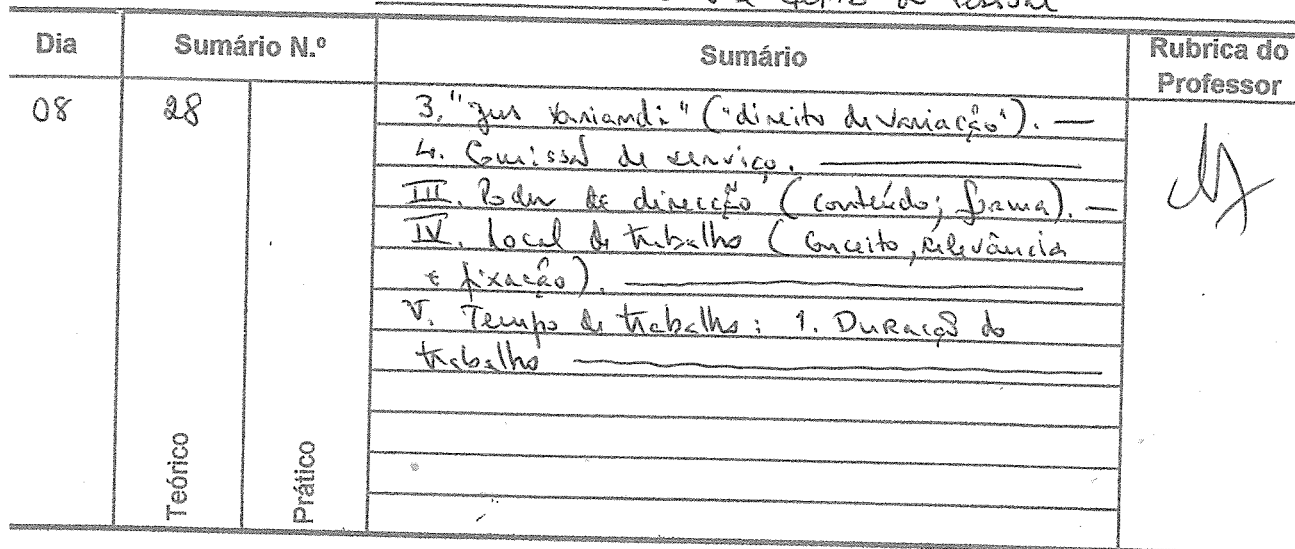 de Pessoal
Dia Sumário N.º Sumário Rubrica do Professor
08 28 3. "Jus Variandi" ("direito de variação"). —
4. Comissão de serviço. —
III. Poder de direcção (conteúdo; forma). —
IV. Local de trabalho (Conceito, relevância
e fixação). —
V. Tempo de trabalho: 1. Duração do
trabalho —
Teórico
Prático